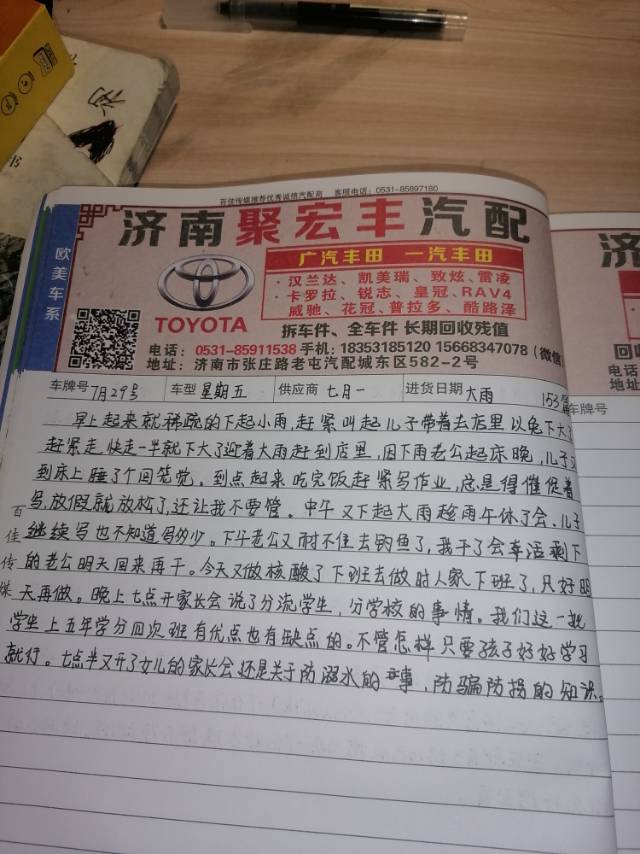 百佳传媒推荐优秀诚信汽配商 客服电话：0531-85897180
济南聚宏丰汽配
欧美车系
广汽丰田 一汽丰田
·汉兰达、凯美瑞、致炫、雷凌
·卡罗拉、锐志、皇冠、RAV4
威驰、花冠、普拉多、酷路泽
TOYOTA
拆车件、全车件 长期回收残值
电话：0531-85911538 手机：18353185120 15668347078（微信
地址：济南市张庄路老屯汽配城东区582-2号
车牌号 7月29号 车型 星期五 供应商 七月一 进货日期 大雨 153
早上起来就稀疏的下起小雨，赶紧叫起儿子带着去店里以免下大了
赶紧走，快走一半就下大了迎着大雨赶到店里，因下雨老公起床晚，儿子又
到床上睡了个回笼觉。到点起来吃完饭赶紧写作业，总是得催促着
写，放假就放松了，还让我不要管。中午又下起大雨趁雨午休了会。儿子
继续写也不知道写多少。下午老公又耐不住去钓鱼了，我干了会车活剩下
的老公明天回来再干。今天又做核酸了下班去做时人家下班了，只好明
天再做。晚上七点开家长会说了分流学生，分学校的事情。我们这一批
学生上五年学分四次班有优点也有缺点的。不管怎样只要孩子好好学习
就行。七点半又开了女儿的家长会还是关于防溺水的事，防骗防拐的知识。
百佳传媒
济
回收
电话
地址
车牌号